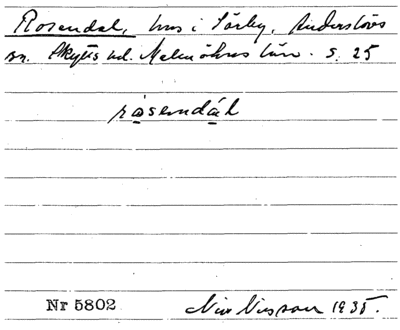 Rosendal, hus i Sörby, Anderslövs
sn. Skytts hd. Malmöhus län. S. 25
rosendal
Nr 5802 Nils Nilsson 1935.